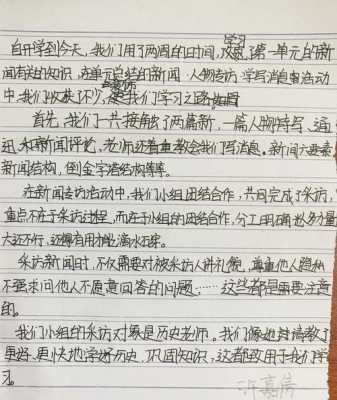 学习
自开学到今天，我们用了两周的时间，第一单元的新
闻有关的知识，在单元总结的新闻、人物专访、学写消息和活动
老师
中，我们收获不少，是我们学习之路
首先，我们一共接触了两篇新，一篇人物特写、通
讯和新闻评论。老师还着重教会我们写消息。新闻六要素
新闻结构，倒金字塔结构等等。
在新闻专访活动中，我们小组团结合作，共同完成了采访，
重点不在于采访过程，而在于小组的团结合作，分工明确，力量
大还不行，还得有用才能滴水石穿。
采访新闻时，不仅需要对被采访人讲礼貌，尊重他人隐私
不要求问他人不愿意回答的问题……这些都是需要注意
的。
我们小组的采访对象是历史老师。我们像她请教了
更好、更快地学好历史，巩固知识，这都致用于我们学
习。
许嘉倩